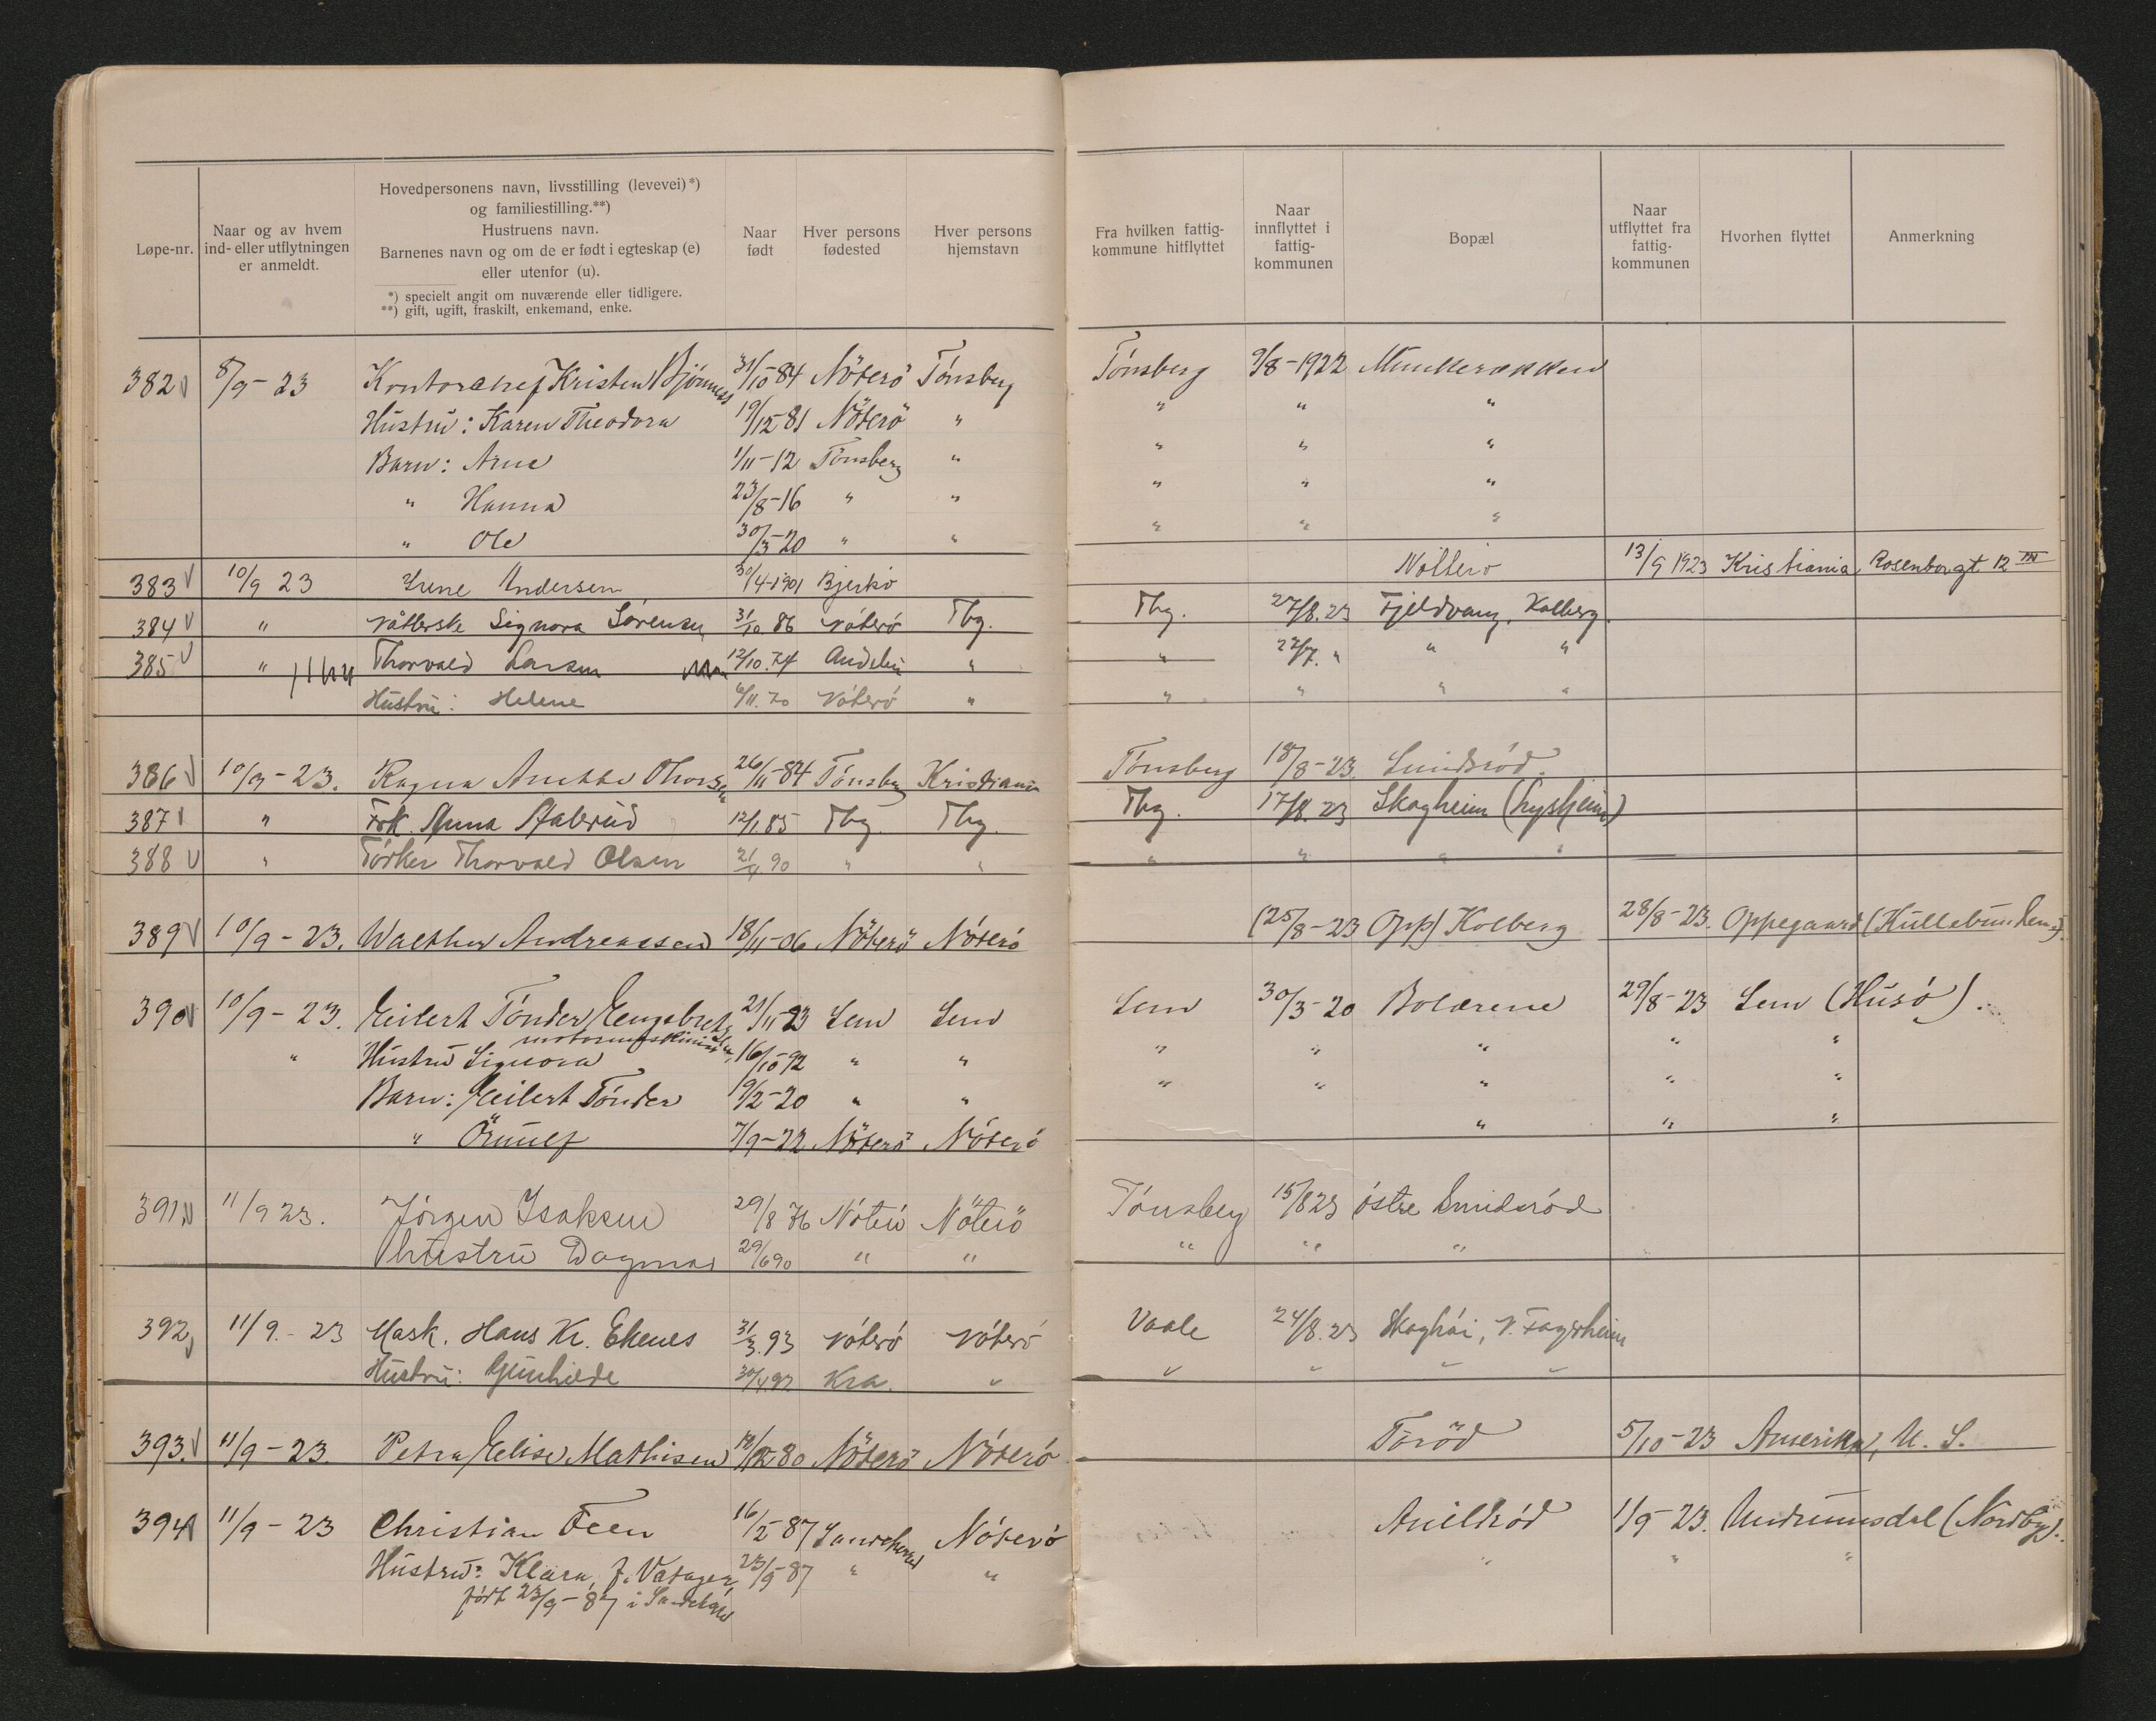 Løpe-nr.
Naar og av hvem
ind- eller utflytningen
er anmeldt.
Hovedpersonens navn, livsstilling (levevei)*)
og familiestilling.**)
Hustruens navn.
Barnenes navn og om de er født i egteskap (e)
eller utenfor (u).
*) specielt angit om nuværende eller tidligere.
**) gift, ugift, fraskilt, enkemand, enke.
Naar
født
Hver persons
fødested
Hver persons
hjemstavn
Fra hvilken fattig-
kommune hitflyttet
Naar
innflyttet i
fattig-
kommunen
Bopæl
Naar
utflyttet fra
fattig-
kommunen
Hvorhen flyttet
Anmerkning
382 8/9-23 Kontorchef Kristen Bjönness 31/10-84 Nöterö Tönsberg Tönsberg 9/8-1922 Munkerækken
Hustru: Karen Theodora 19/12 81 Nöterö " " " "
Barn: Arne 1/11-12 Tönsberg " " " "
" Hanna 23/8-16 " " " " "
" Ole 30/3-20 " " " " "
383 10/9 23 Irene Andersen 30/4-1901 Bjerkö Nötterö 13/9 1923 Kristiania Rosenborgt 12 III
384 " Signora Sörensen 31/10.86 Nöterö Tbg. Tbg. 27/8.23 Fjeldvang, Kolberg.
385 " Thorvald Larsen 12/10.74 " " 27/7. " " "
Hustru: Helene 6/11.70 Nöterö " " " " "
386 10/9-23. Ragna Anette Thorsen 26/11-84 Tönsberg Kristiania Tönsberg 18/8-23. Smidsröd.
387 " Frk. Anna 12/1.85 Tbg. Tbg. Tbg. 17/8.23 Skogheim (Lysheim)
388 " Thorvald Olsen 21/4 90 " " " " " "
389 10/9-23. Walther Andreassen 18/11-06 Nöterö Nöterö (25/8-23 Opp) Kolberg 28/8-23. Oppegaard (Kullebunden).
390 10/9-23. Eilert Tönder Engebretsen 21/11-93 Sem Sem Sem 30/3-20 Bolærene 29/8-23 Sem (Husö).
motormaskinist
" Hustru Signora 16/10 92 " " " " " " "
Barn: Eilert Tönder 19/2-20 " " " " " " "
" Örnulf 7/9-22 Nöterö Nöterö " " "
391. 11/9 23. Jörgen Isaksen 29/8 76 Nöterö Nöterö Tönsberg 15/8 23 östre Smidsröd
Hustru Dagmar 29/6 90 " " " " "
392, 11/9.-23 Mask. Hans Kr. Ekenes 31/3.93 Nöterö Nöterö Vaale 24/8.23 V. Fagerheim
Hustru: Gunhilde 30/4 92 Kra. " " " " "
393. 11/9-23. Petra Elise Mathisen 12/12 80 Nöterö Nöterö Toröd 5/10-23 Amerika, U. S.
394 11/9-23 Christian Feen 16/5-87 Sandeherred Nöterö 1/9-23. Undrumsdal (Nordby).
Hustru: Klara, f. 23/9-87 " " " " "
född 23/9-87 i Sandeherred